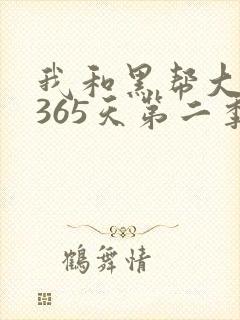 我和黑帮大
365天第二季
鹤舞情